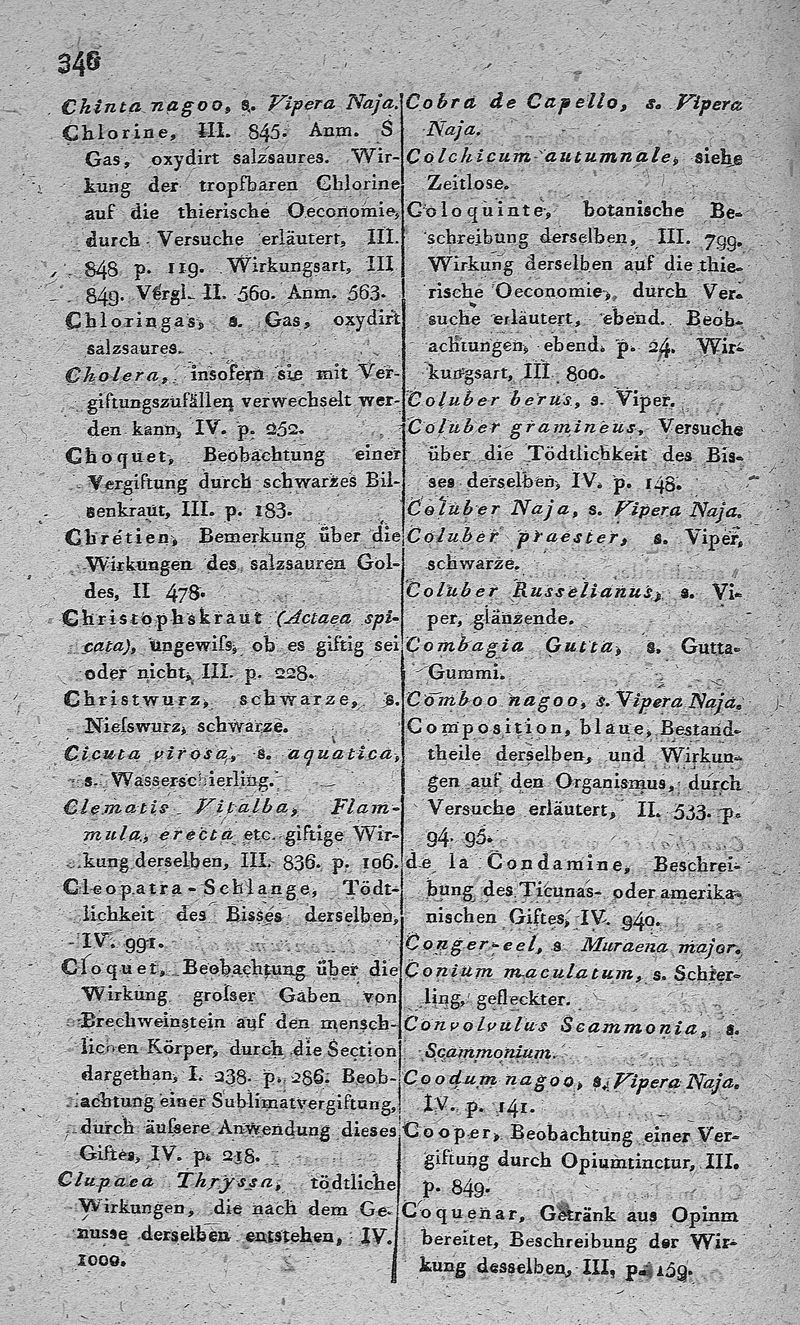 346
Chinta nagoo, s. Vipera Naja.
Chlorine, III. 845. Anm. S
Gas, oxydirt salzsaures. Wir-
kung der tropfbaren Chlorine
auf die thierische Oeconomie,
durch Versuche erläutert, III.
848 p. 119. Wirkungsart, III
849. Vergl. II. 560. Anm. 563.
Chloringas, s. Gas, oxydirt
salzsaures.
Cholera, insofern sie mit Ver-
giftungszufällen verwechselt wer-
den kann, IV. p. 252.
Choquet, Beobachtung einer
Vergiftung durch schwarzes Bil-
senkraut, III. p. 183.
Chrétien, Bemerkung über die
Wirkungen des salzsauren Gol-
des, II 478.
Christophskraut (Actaea spi-
cata), ungewiſs, ob es giftig sei
oder nicht, III. p. 228.
Christwurz, schwarze, s.
Nieſswurz, schwarze.
Cicuta virosa, s. aquatica,
s. Wasserschierling.
Clematis Vitalba, Flam-
mula, erecta etc. giftige Wir-
kung derselben, III. 836. p. 106.
Cleopatra-Schlange, Tödt-
lichkeit des Bisses derselben,
IV. 991.
Cloquet, Beobachtung über die
Wirkung groſser Gaben von
Brechweinstein auf den mensch-
lichen Körper, durch die Section
dargethan, I. 238. p. 286. Beob-
achtung einer Sublimatvergiftung,
durch äuſsere Anwendung dieses
Giftes, IV. p. 218.
Clupaea Thryssa, tödtliche
Wirkungen, die nach dem Ge-
nusse derselben entstehen, IV.
1000.
Cobra de Capello, s. Vipera
Naja.
Colchicum autumnale, siehe
Zeitlose.
Coloquinte, botanische Be-
schreibung derselben, III. 799.
Wirkung derselben auf die thie-
rische Oeconomie, durch Ver-
suche erläutert, ebend. Beob-
achtungen, ebend. p. 24. Wir-
kungsart, III 800.
Coluber berus, s. Viper.
Coluber gramineus, Versuche
über die Tödtlichkeit des Bis-
ses derselben, IV. p. 148.
Coluber Naja, s. Vipera Naja.
Coluber praester, s. Viper,
schwarze.
Coluber Russelianus, s. Vi-
per, glänzende.
Combagia Gutta, s. Gutta-
Gummi.
Comboo nagoo, s. Vipera Naja.
Composition, blaue, Bestand-
theile derselben, und Wirkun-
gen auf den Organismus, durch
Versuche erläutert, II. 533. p.
94. 95.
de la Condamine, Beschrei-
bung des Ticunas- oder amerika-
nischen Giftes, IV. 940.
Conger-eel, s Muraena major.
Conium maculatum, s. Schier-
ling, gefleckter.
Convolvulus Scammonia, s.
Scammonium.
Coodum nagoo, s. Vipera Naja.
IV. p. 141.
Cooper, Beobachtung einer Ver-
giftung durch Opiumtinctur, III.
p. 849.
Coquenar, Getränk aus Opium
bereitet, Beschreibung der Wir-
kung desselben, III, p. 159.